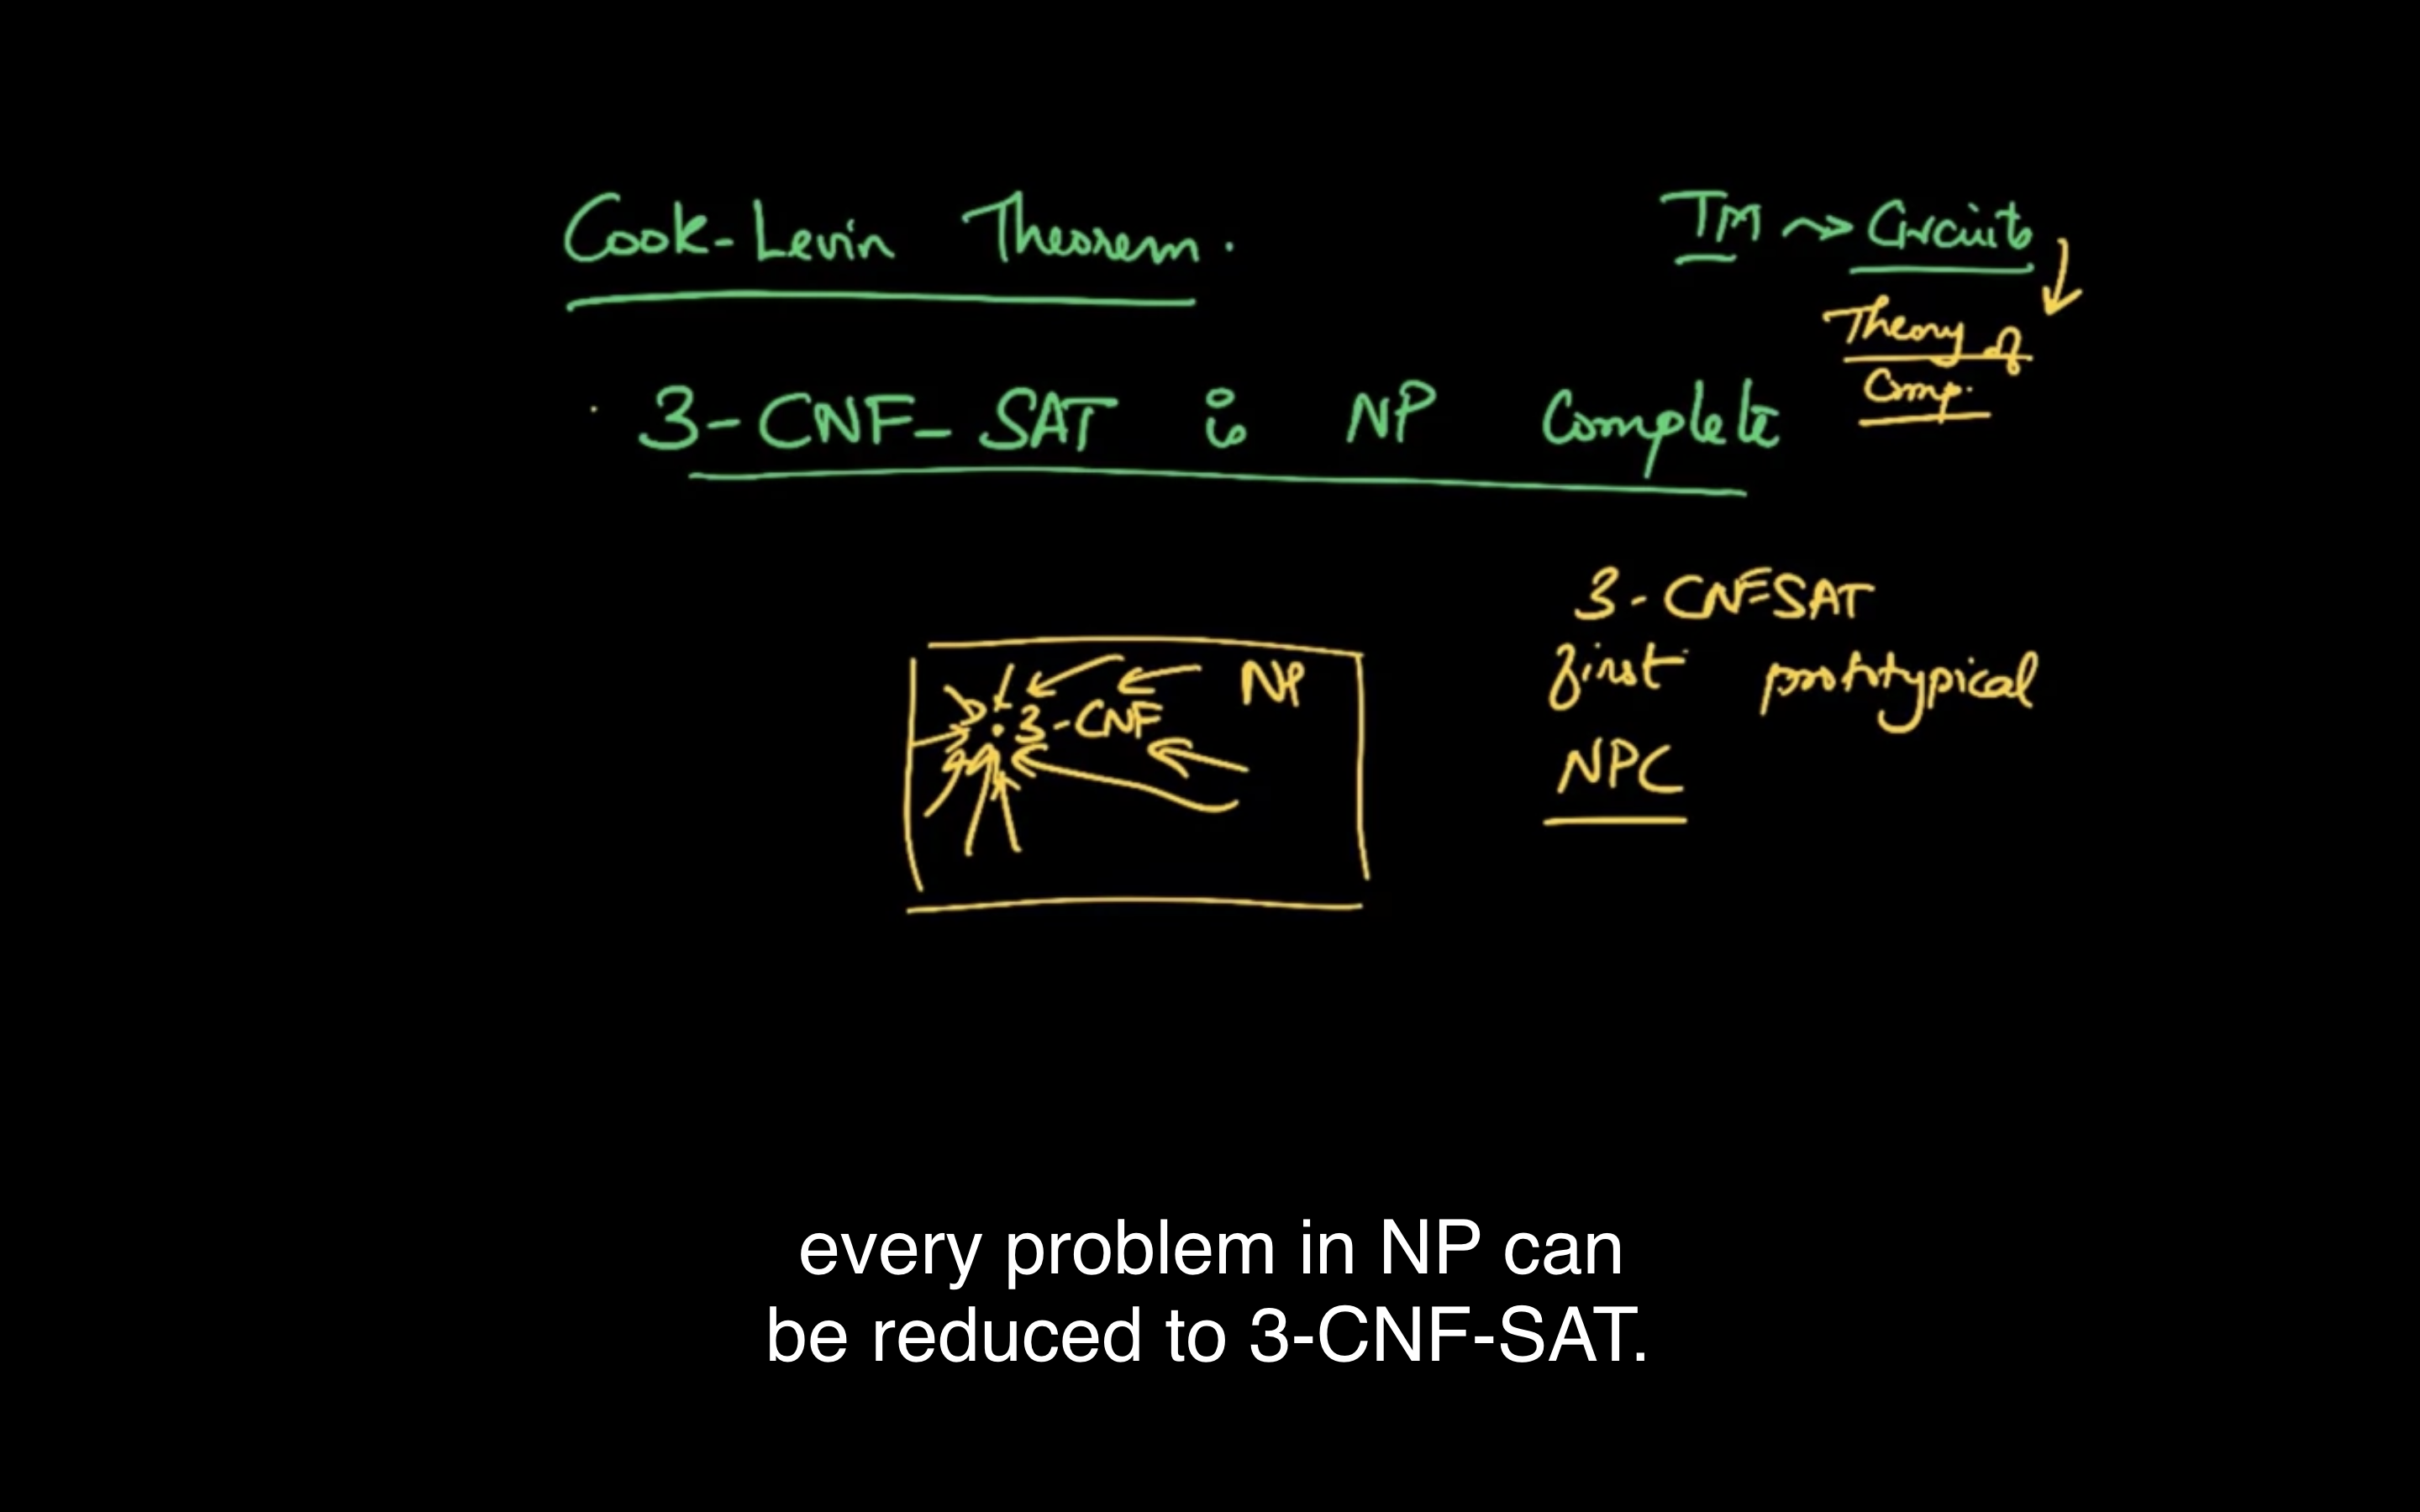 Cook-Levin Theorem.
TM ⇝ Circuits
Theory of
Comp.
3-CNF-SAT is NP Complete
3-CNFSAT
first prototypical
NPC
NP
3-CNF
every problem in NP can
be reduced to 3-CNF-SAT.